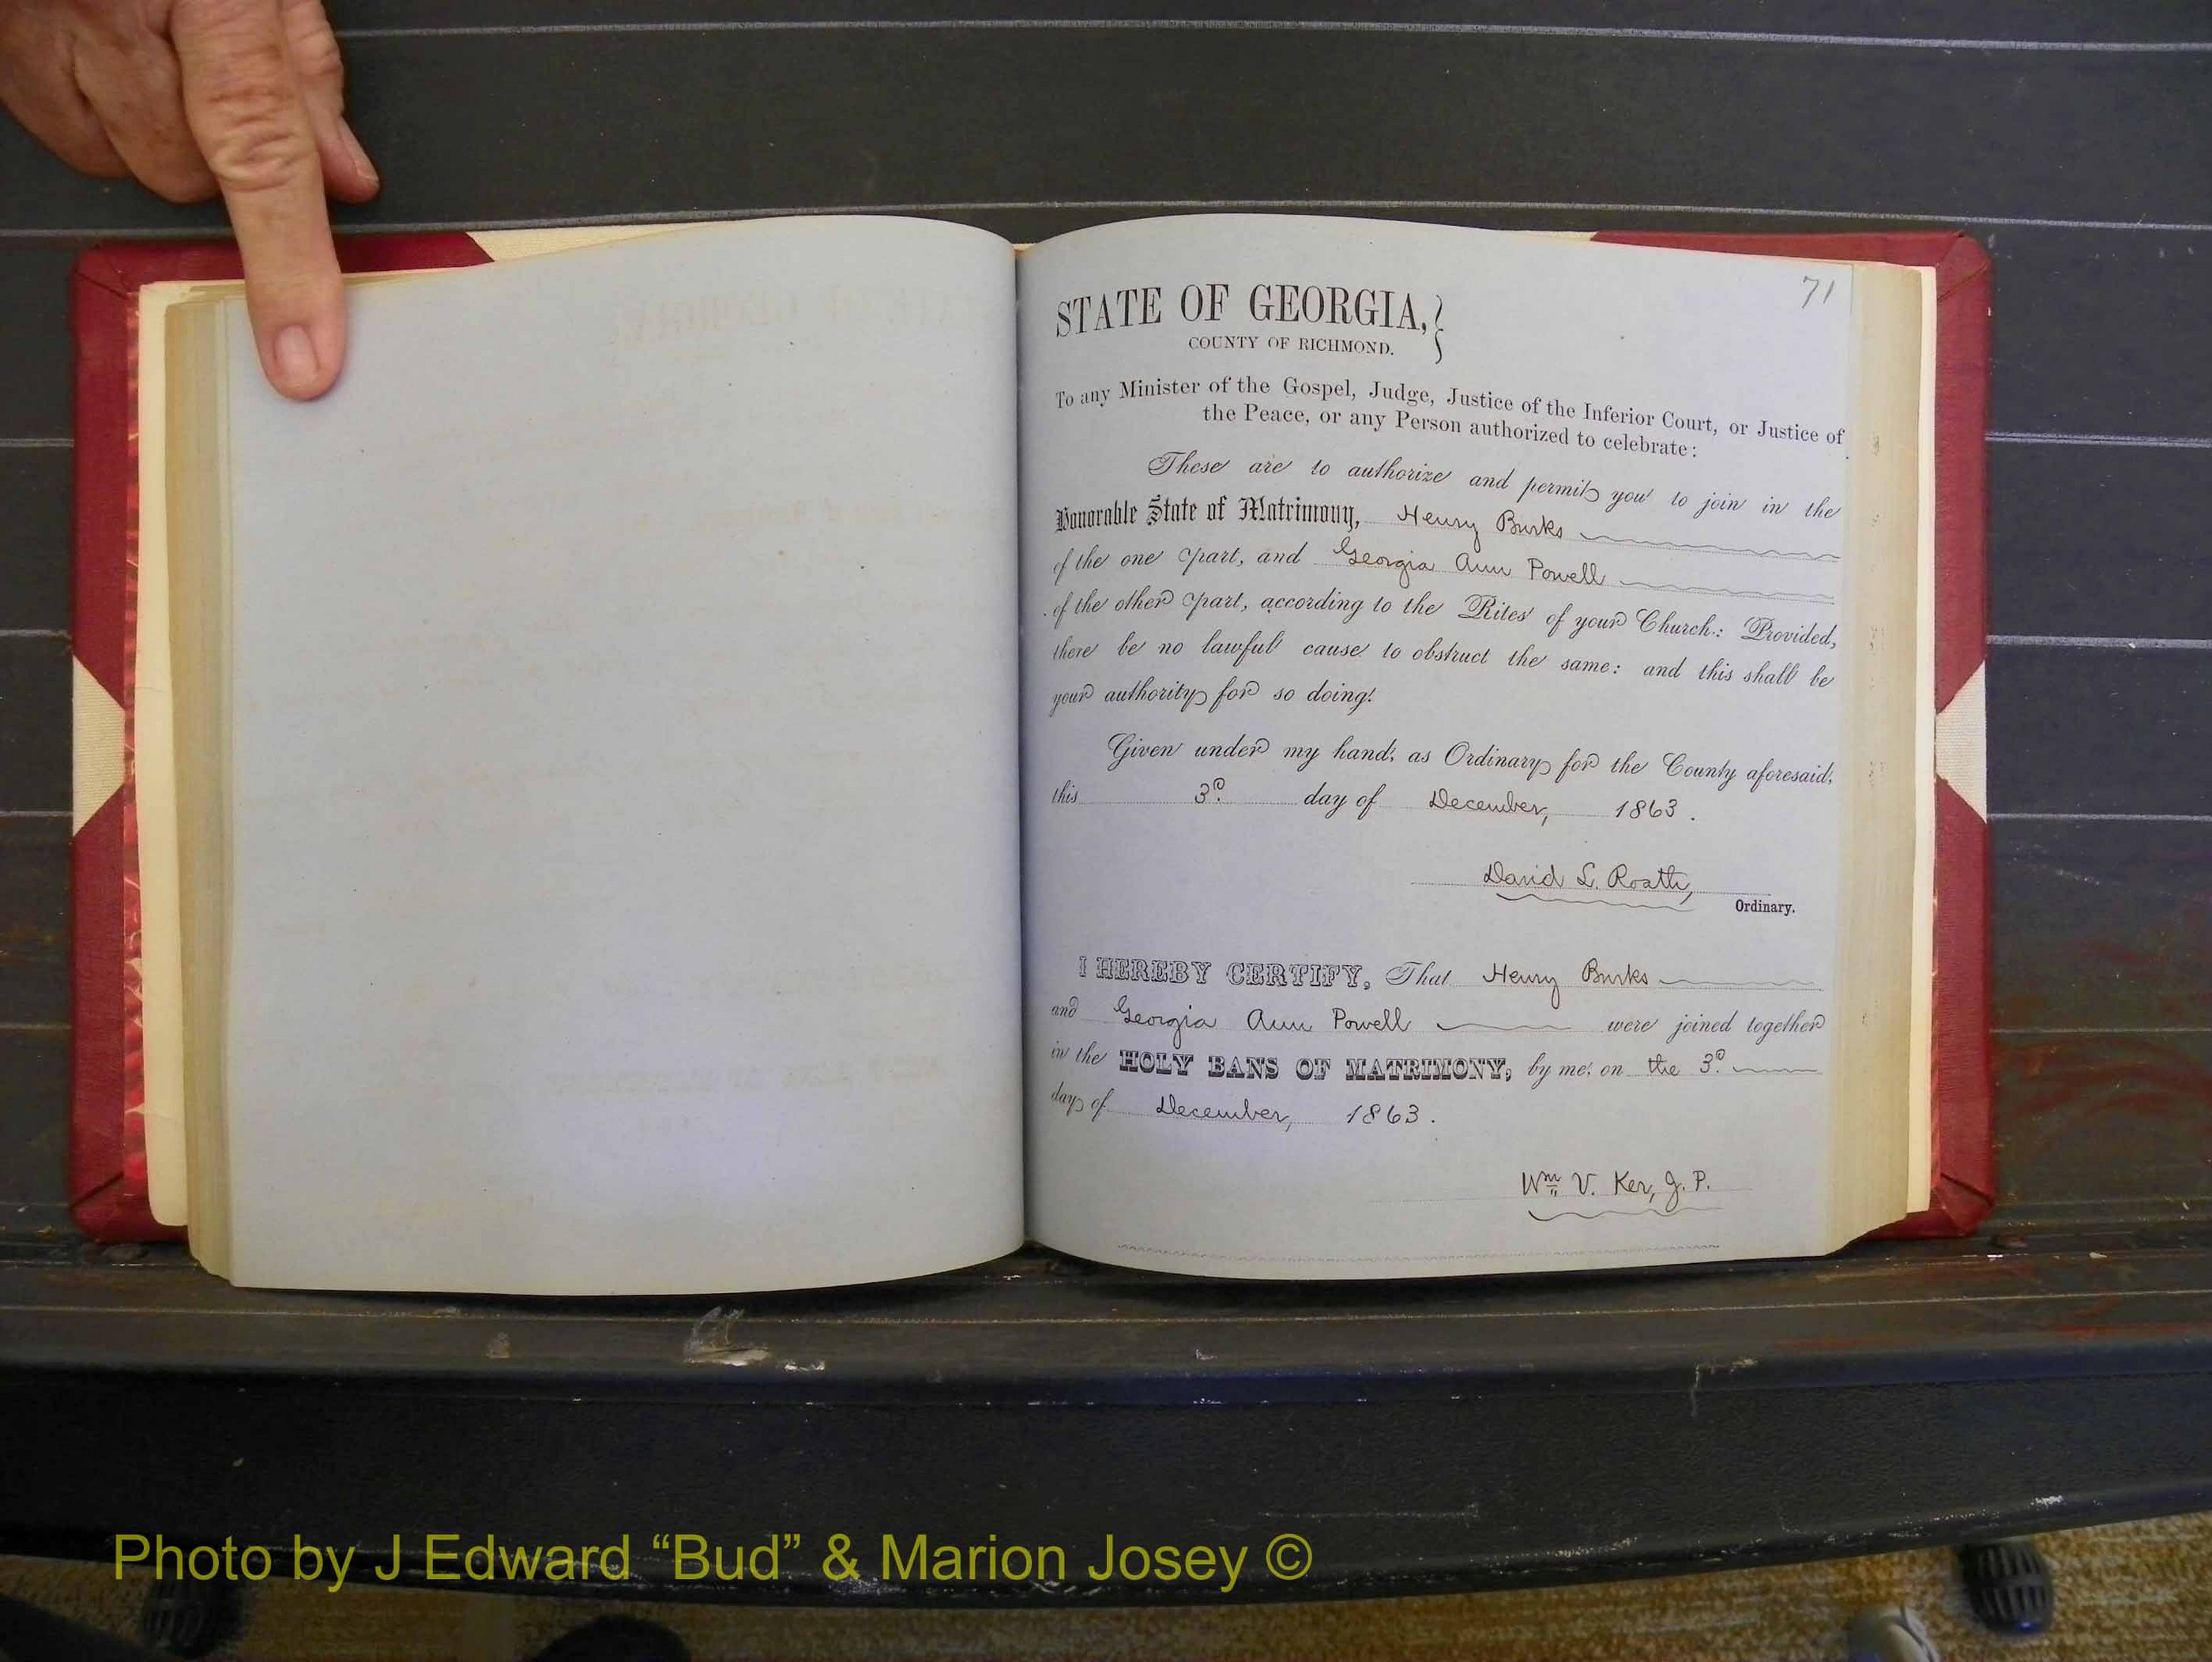 71
STATE OF GEORGIA,
COUNTY OF RICHMOND.
To any Minister of the Gospel, Judge, Justice of the Inferior Court, or Justice of
the Peace, or any Person authorized to celebrate:
These are to authorize and permit you to join in the
Honorable State of Matrimony, Henry Burks
of the one part, and Georgia Ann Powell
of the other part, according to the Rites of your Church: Provided,
there be no lawful cause to obstruct the same: and this shall be
your authority for so doing.
Given under my hand, as Ordinary for the County aforesaid,
this 3d day of December, 1863.
David L. Roath,
Ordinary.
I HEREBY CERTIFY, That Henry Burks
and Georgia Ann Powell were joined together
in the HOLY BANS OF MATRIMONY, by me, on the 3d
day of December, 1863.
Wm V. Ker, J. P.
Photo by J Edward “Bud” & Marion Josey ©